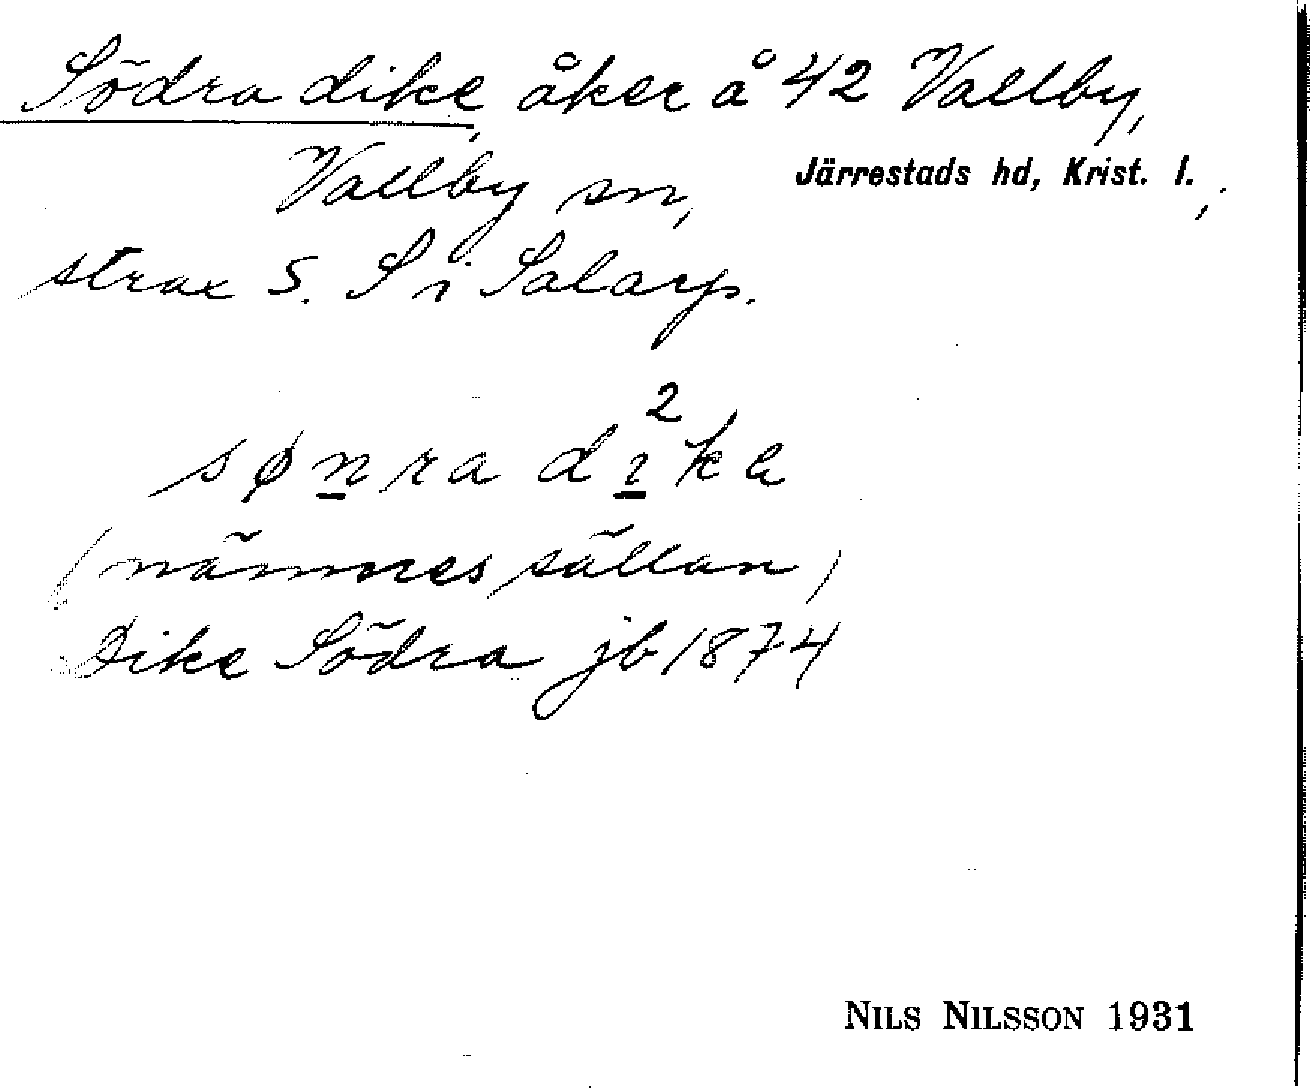 Södra dike, åker å 42 Vallby,
Vallby sn, Järrestads hd, Krist. l.,;
strax S. S i Salarp.
sønra di²ka
(nämnes sällan)
Dike Södra jb 1874
NILS NILSSON 1931